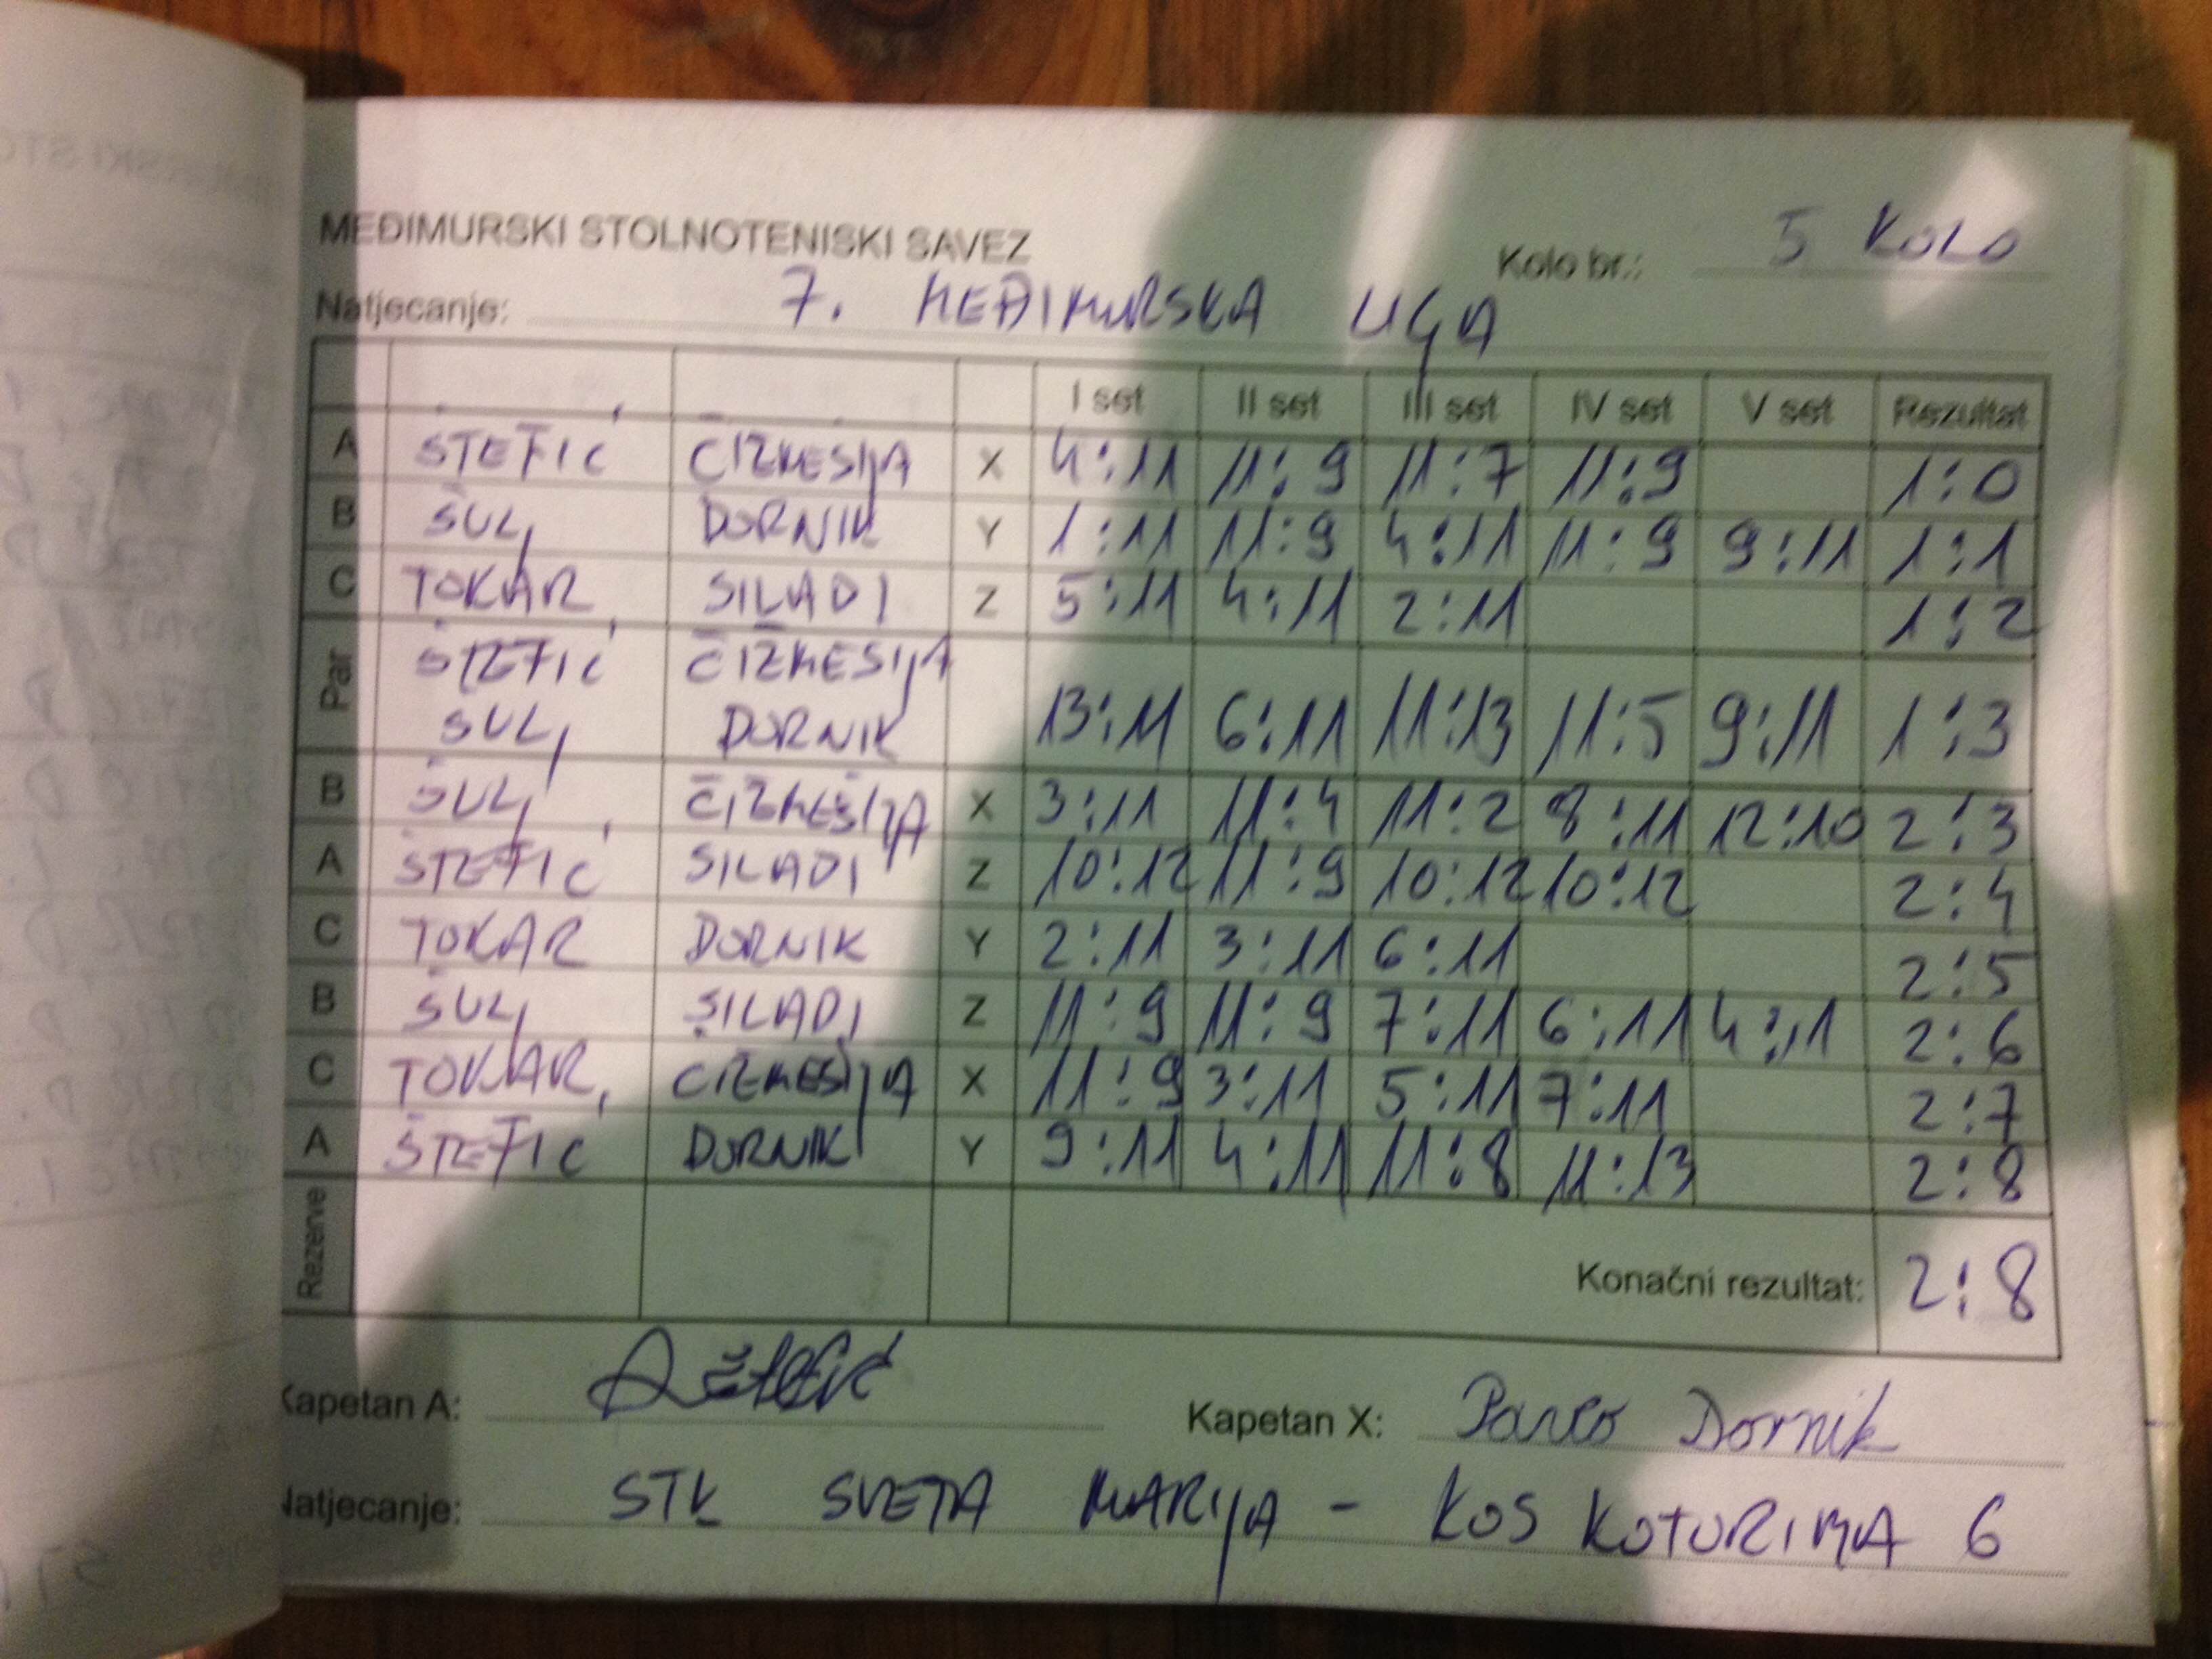 MEĐIMURSKI STOLNOTENISKI SAVEZ
Kolo br.: 5 KOLO
Natjecanje: 7. MEĐIMURSKA LIGA
I set II set III set IV set V set Rezultat
A ŠTEFIĆ ČIZMESIJA X 4:11 11:9 11:7 11:9 1:0
B ŠULJ DORNIK Y 1:11 11:9 4:11 11:9 9:11 1:1
C TOKAR SILADI Z 5:11 4:11 2:11 1:2
Par ŠTEFIĆ ČIZMESIJA
ŠULJ DORNIK 13:11 6:11 11:13 11:5 9:11 1:3
B ŠULJ ČIZMEŠIJA X 3:11 11:4 11:2 8:11 12:10 2:3
A ŠTEFIĆ SILADI Z 10:12 11:9 10:12 10:12 2:4
C TOKAR DORNIK Y 2:11 3:11 6:11 2:5
B ŠULJ SILADI Z 11:9 11:9 7:11 6:11 4:11 2:6
C TOKAR ČIZMEŠIJA X 11:9 3:11 5:11 7:11 2:7
A ŠTEFIĆ DORNIK Y 9:11 4:11 11:8 11:13 2:8
Rezerve
Konačni rezultat: 2:8
Kapetan A: Štefić Kapetan X: Dornik
Natjecanje: STK SVETA MARIJA - KOS KOTORIMA 6